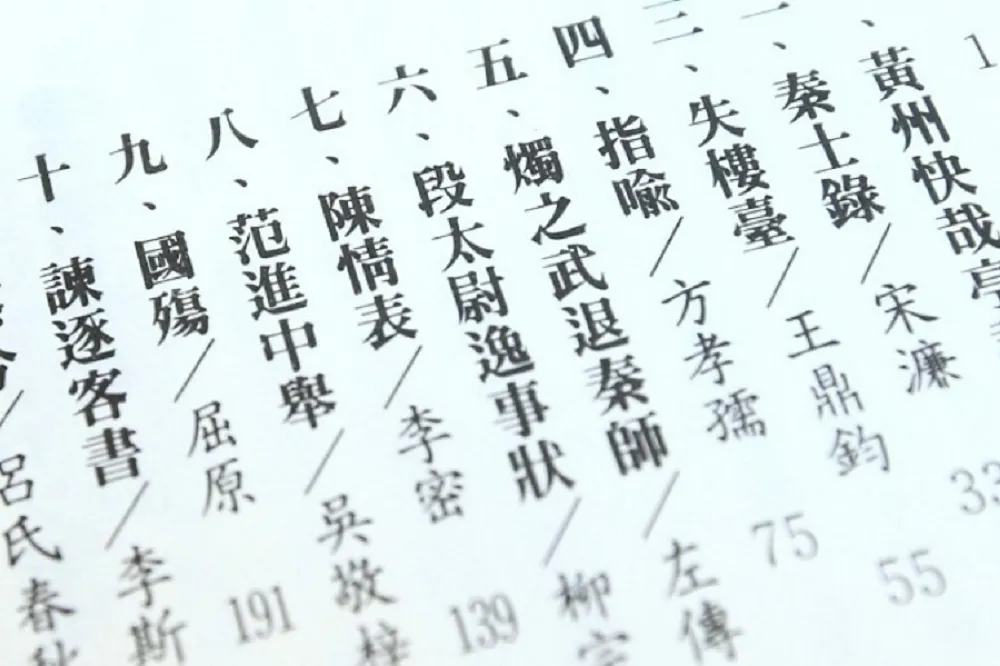 1
、黃州快哉亭
、秦士錄／宋濂 33
三、失樓臺／王鼎鈞 55
四、指喻／方孝孺 75
五、燭之武退秦師／左傳
六、段太尉逸事狀／柳宗
七、陳情表／李密 139
八、范進中舉／吳敬梓
九、國殤／屈原 191
十、諫逐客書／李斯
／呂氏春秋